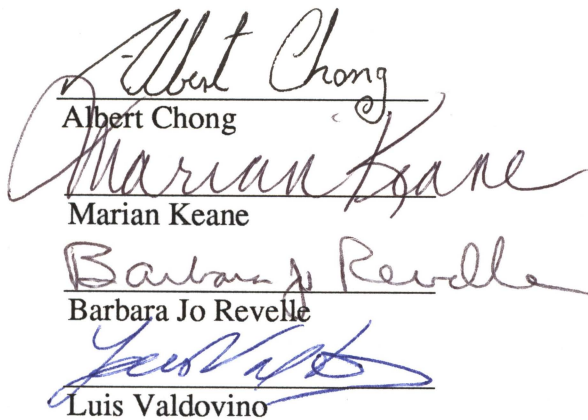 Albert Chong
Albert Chong
Marian Keane
Marian Keane
Barbara Jo Revelle
Barbara Jo Revelle
Luis Valdovino